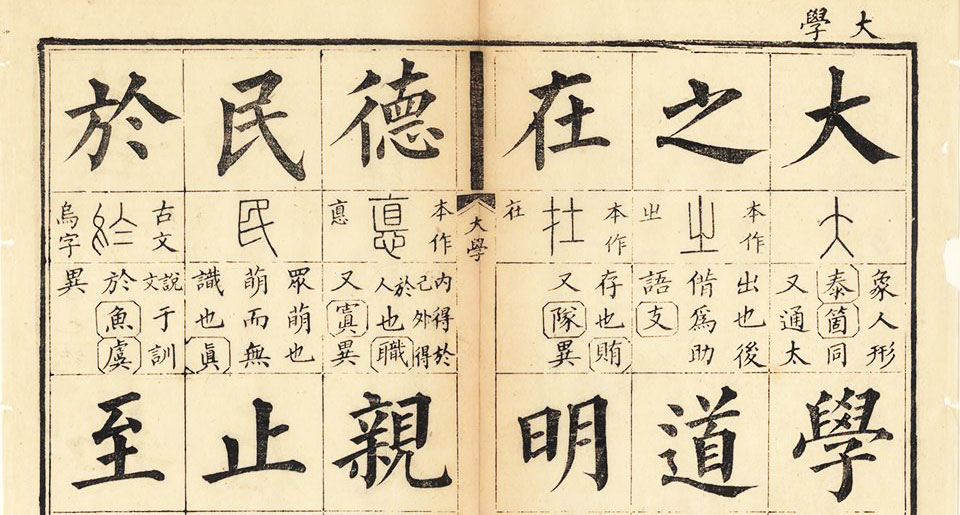 大學
大
大
象人形
泰箇同
又通太
學
之
本作
㞢
㞢
出也後
借爲助
語支
道
在
本作
在
存也賄
又隊異
明
大學
德
本作
悳
悳
內得於
己外得
於人
也職
又寘異
親
民
民
眾萌也
萌而無
識也眞
止
於
古文
烏字
說文于訓
於魚虞
異
至